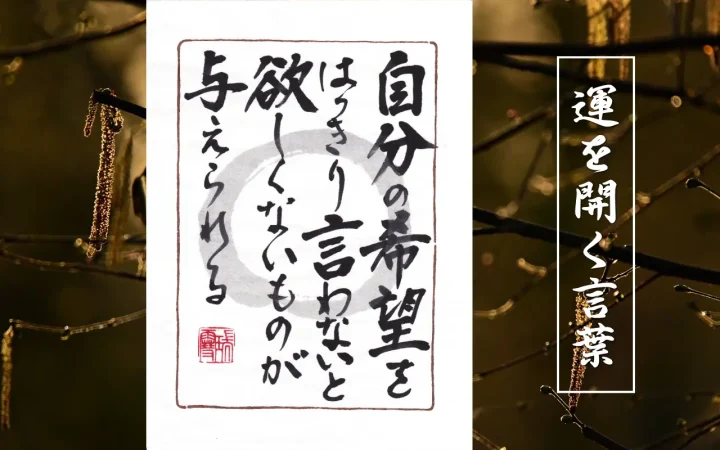 自分の希望を
はっきり言わないと
欲しくないものが
与えられる
運を開く言葉